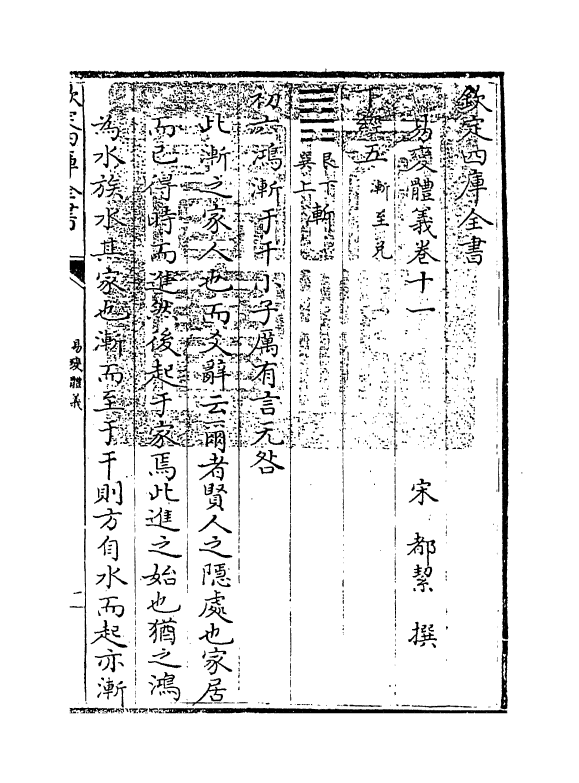 欽定四庫全書
易變體義卷十一
宋 都絜 撰
下經五 漸至兌
艮下巽上 漸
初六鴻漸于干小子厲有言无咎
此漸之家人也而爻辭云爾者賢人之隱處也家居
而已得時而進然後起于家焉此進之始也猶之鴻
為水族水其家也漸而至于干則方自水而起亦漸
欽定四庫全書
易變體義